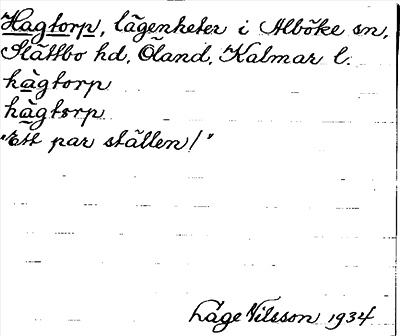 Hagtorp, lägenheter i Alböke sn,
Slättbo hd, Öland, Kalmar l.
hagtorp
hagtorp
"Ett par ställen!"
Låge Nilsson 1934